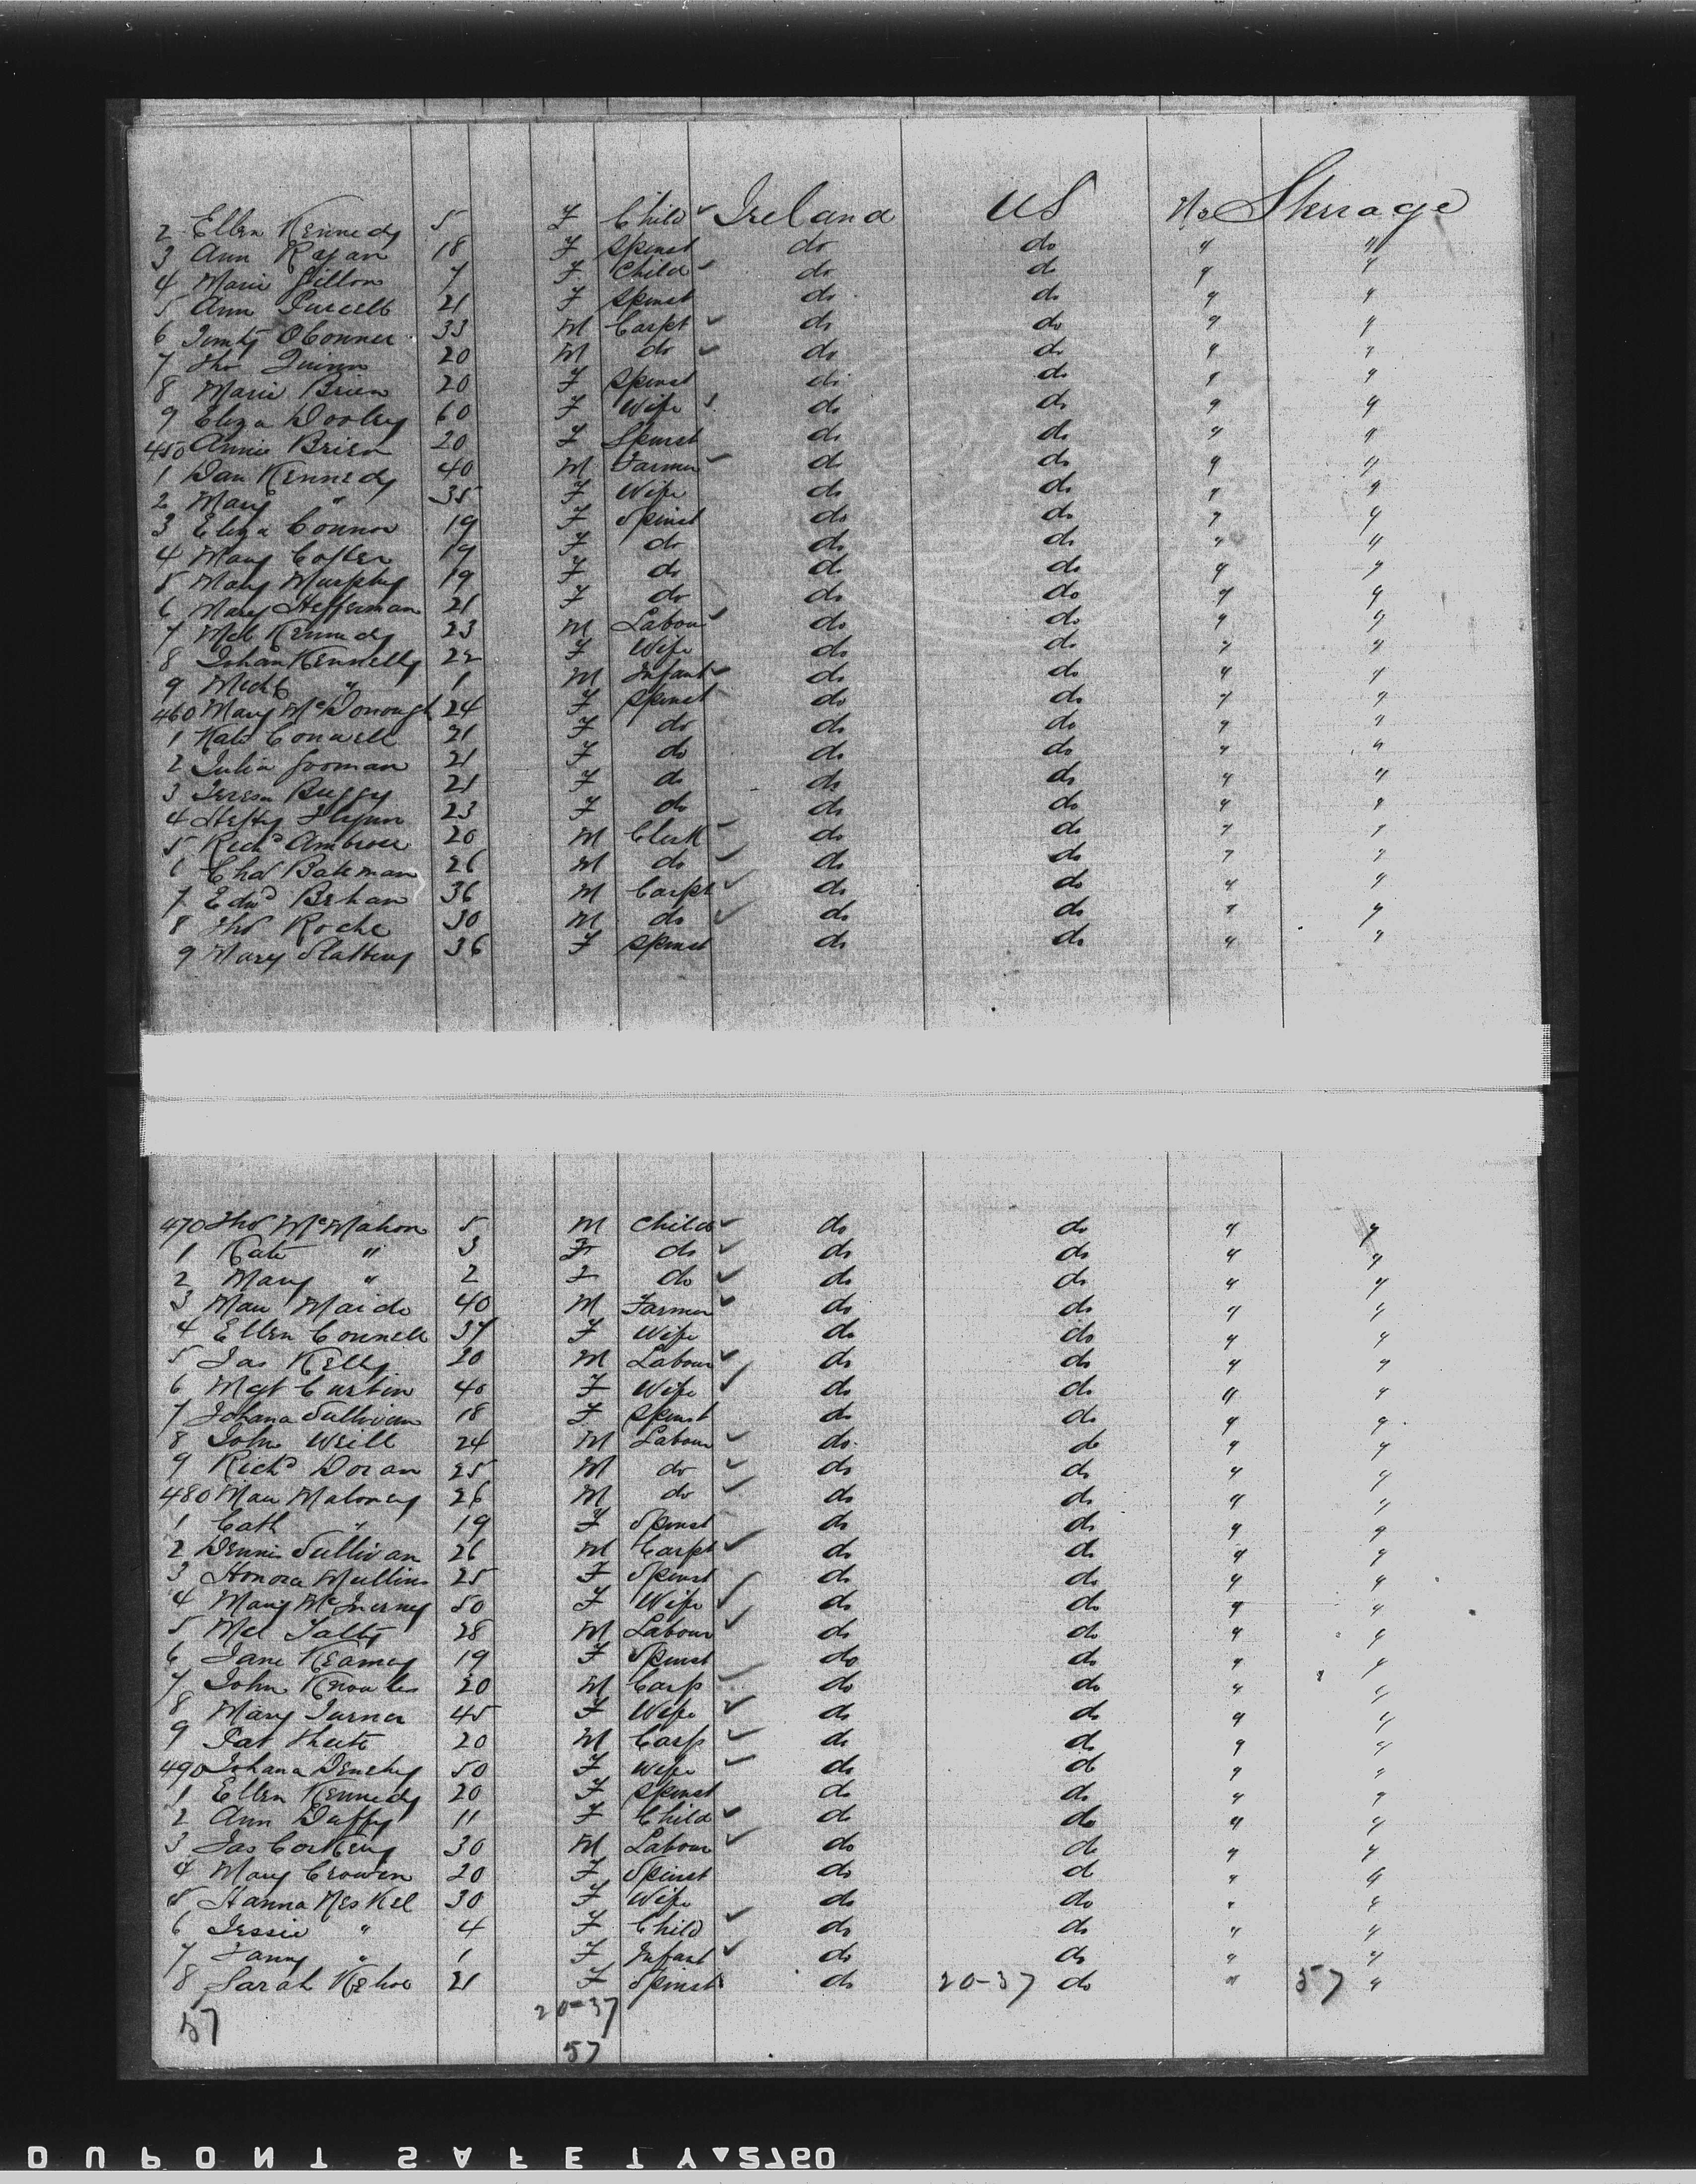 2 Ellen Kennedy 5 F Child ✓ Ireland US No Steerage
3 Ann Ragan 18 F Spinst do do " "
4 Marie Dillon 7 F Child ✓ do do " "
5 Ann Purcell 21 F Spinst do do " "
6 Timty OConner 33 M Carpt ✓ do do " "
7 Tho Quinn 20 M do ✓ do do " "
8 Marie Brien 20 F Spinst do do " "
9 Eliza Dooley 60 F Wife ✓ do do " "
450 Annie Brien 20 F Spinst do do " "
1 Dan Kennedy 40 M Farmer ✓ do do " "
2 Mary " 35 F Wife do do " "
3 Eliza Connor 19 F Spinst do do " "
4 Mary 19 F do do do " "
5 Mary Murphy 19 F do do do " "
6 Mary Heffernan 21 F do do do " "
7 Mcl Kennedy 23 M Labour ✓ do do " "
8 Johan Kennelly 22 F Wife do do " "
9 Michl " 1 M Infant ✓ do do " "
460 Mary McDonough 24 F Spinst do do " "
1 Kate Connell 21 F do do do " "
2 Julia Gorman 21 F do do do " "
3 Teresa Buggy 21 F do do do " "
4 Flynn 23 F do do do " "
5 Richd Ambrose 20 M Clerk ✓ do do " "
6 Chas Bateman 26 M do ✓ do do " "
7 Edwd Behan 36 M Carpt ✓ do do " "
8 Tho Roche 30 M do ✓ do do " "
9 Mary Slattery 36 F Spinst do do " "
470 Tho McMahon 5 M Child ✓ do do " "
1 Kate " 3 F do ✓ do do " "
2 Mary " 2 F do ✓ do do " "
3 Mau 40 M Farmer ✓ do do " "
4 Ellen Connell 37 F Wife do do " "
5 Jas Kelly 20 M Labour ✓ do do " "
6 Mgt Curtin 40 F Wife ✓ do do " "
7 Johana Sullivan 18 F Spinst do do " "
8 John Weill 24 M Labour ✓ do do " "
9 Richd Doran 25 M do ✓ do do " "
480 Mau Maloney 26 M do ✓ do do " "
1 Cath " 19 F Spinst do do " "
2 Dennis Sullivan 26 M Carpt ✓ do do " "
3 Honora Mullins 25 F Spinst do do " "
4 Mary McInerney 50 F Wife ✓ do do " "
5 Mcl Talty 28 M Labour ✓ do do " "
6 Jane Keamey 19 F Spinst do do " "
7 John Knowles 20 M Carp ✓ do do " "
8 Mary Turner 45 F Wife ✓ do do " "
9 Pat 20 M Carp ✓ do do " "
490 Johana 50 F Wife ✓ do do " "
1 Ellen Kennedy 20 F Spinst do do " "
2 Ann Duffy 11 F Child ✓ do do " "
3 Jas Corkery 30 M Labour ✓ do do " "
4 Mary Crowen 20 F Spinst do do " "
5 Hanna Meskel 30 F Wife do do " "
6 Jessie " 4 F Child ✓ do do " "
7 Fanny " 1 F Infant ✓ do do " "
8 Sarah Kehoe 21 F Spinst do 20-37 do " 57 "
57 20-37
57
DUPONT SAFETY▲2760